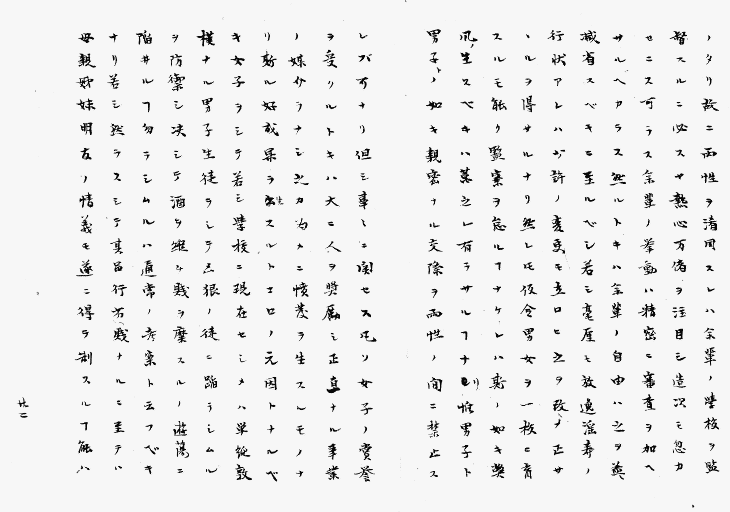 ノタリ故ニ両性ヲ清閑スレハ余輩ノ学校ヲ監
督スルニ必スヤ熱心万倍ヲ注目シ造次モ忽カ
セニス可ラス余輩ノ挙動ハ精密ニ審査ヲ加ヘ
サルヘカラス然ルトキハ余輩ノ自由ハ之ヲ
減省スベキニ至ルベシ若シ毫厘モ放逸淫奔ノ
行状アレハ少許ノ変更モ立ロニ之ヲ改メ正サ
ヽルヲ得サルナリ然レ𪜈仮令男女ヲ一校ニ育
スルモ能ク監察ヲ怠ルヿナケレハ斯ノ如キ
風ノ生スベキハ蓋之レ有ラサルヿナリ惟男子ト
男子ノ如キ親密ナル交際ヲ両性ノ間ニ禁止ス
レバ可ナリ但シ事ニ関セス凡ソ女子ノ賞誉
ヲ受クルトキハ大ニ人ヲ奨励シ正直ナル事業
ノ媒介ヲナシ之カ為メニ憤発ヲ生スルモノナ
リ斯ル好成果ヲ生スルトコロノ元因トナルベ
キ女子ヲシテ若シ学校ニ現在セシメハ単従
横ナル男子生徒ヲシテ狠ノ徒ニ陥ラシムル
ヲ防禦シ决シテ酒ヲ縦ニ賤ヲ糜スルノ遊蕩ニ
陥ヰルヿ勿ラシムルハ通常ノ考案ト云フベキ
ナリ若シ然ラスシテ其品行汚賤ナルニ至テハ
母親姉妹朋友ノ情義モ遂ニ得テ制スルヿ能ハ
廿二